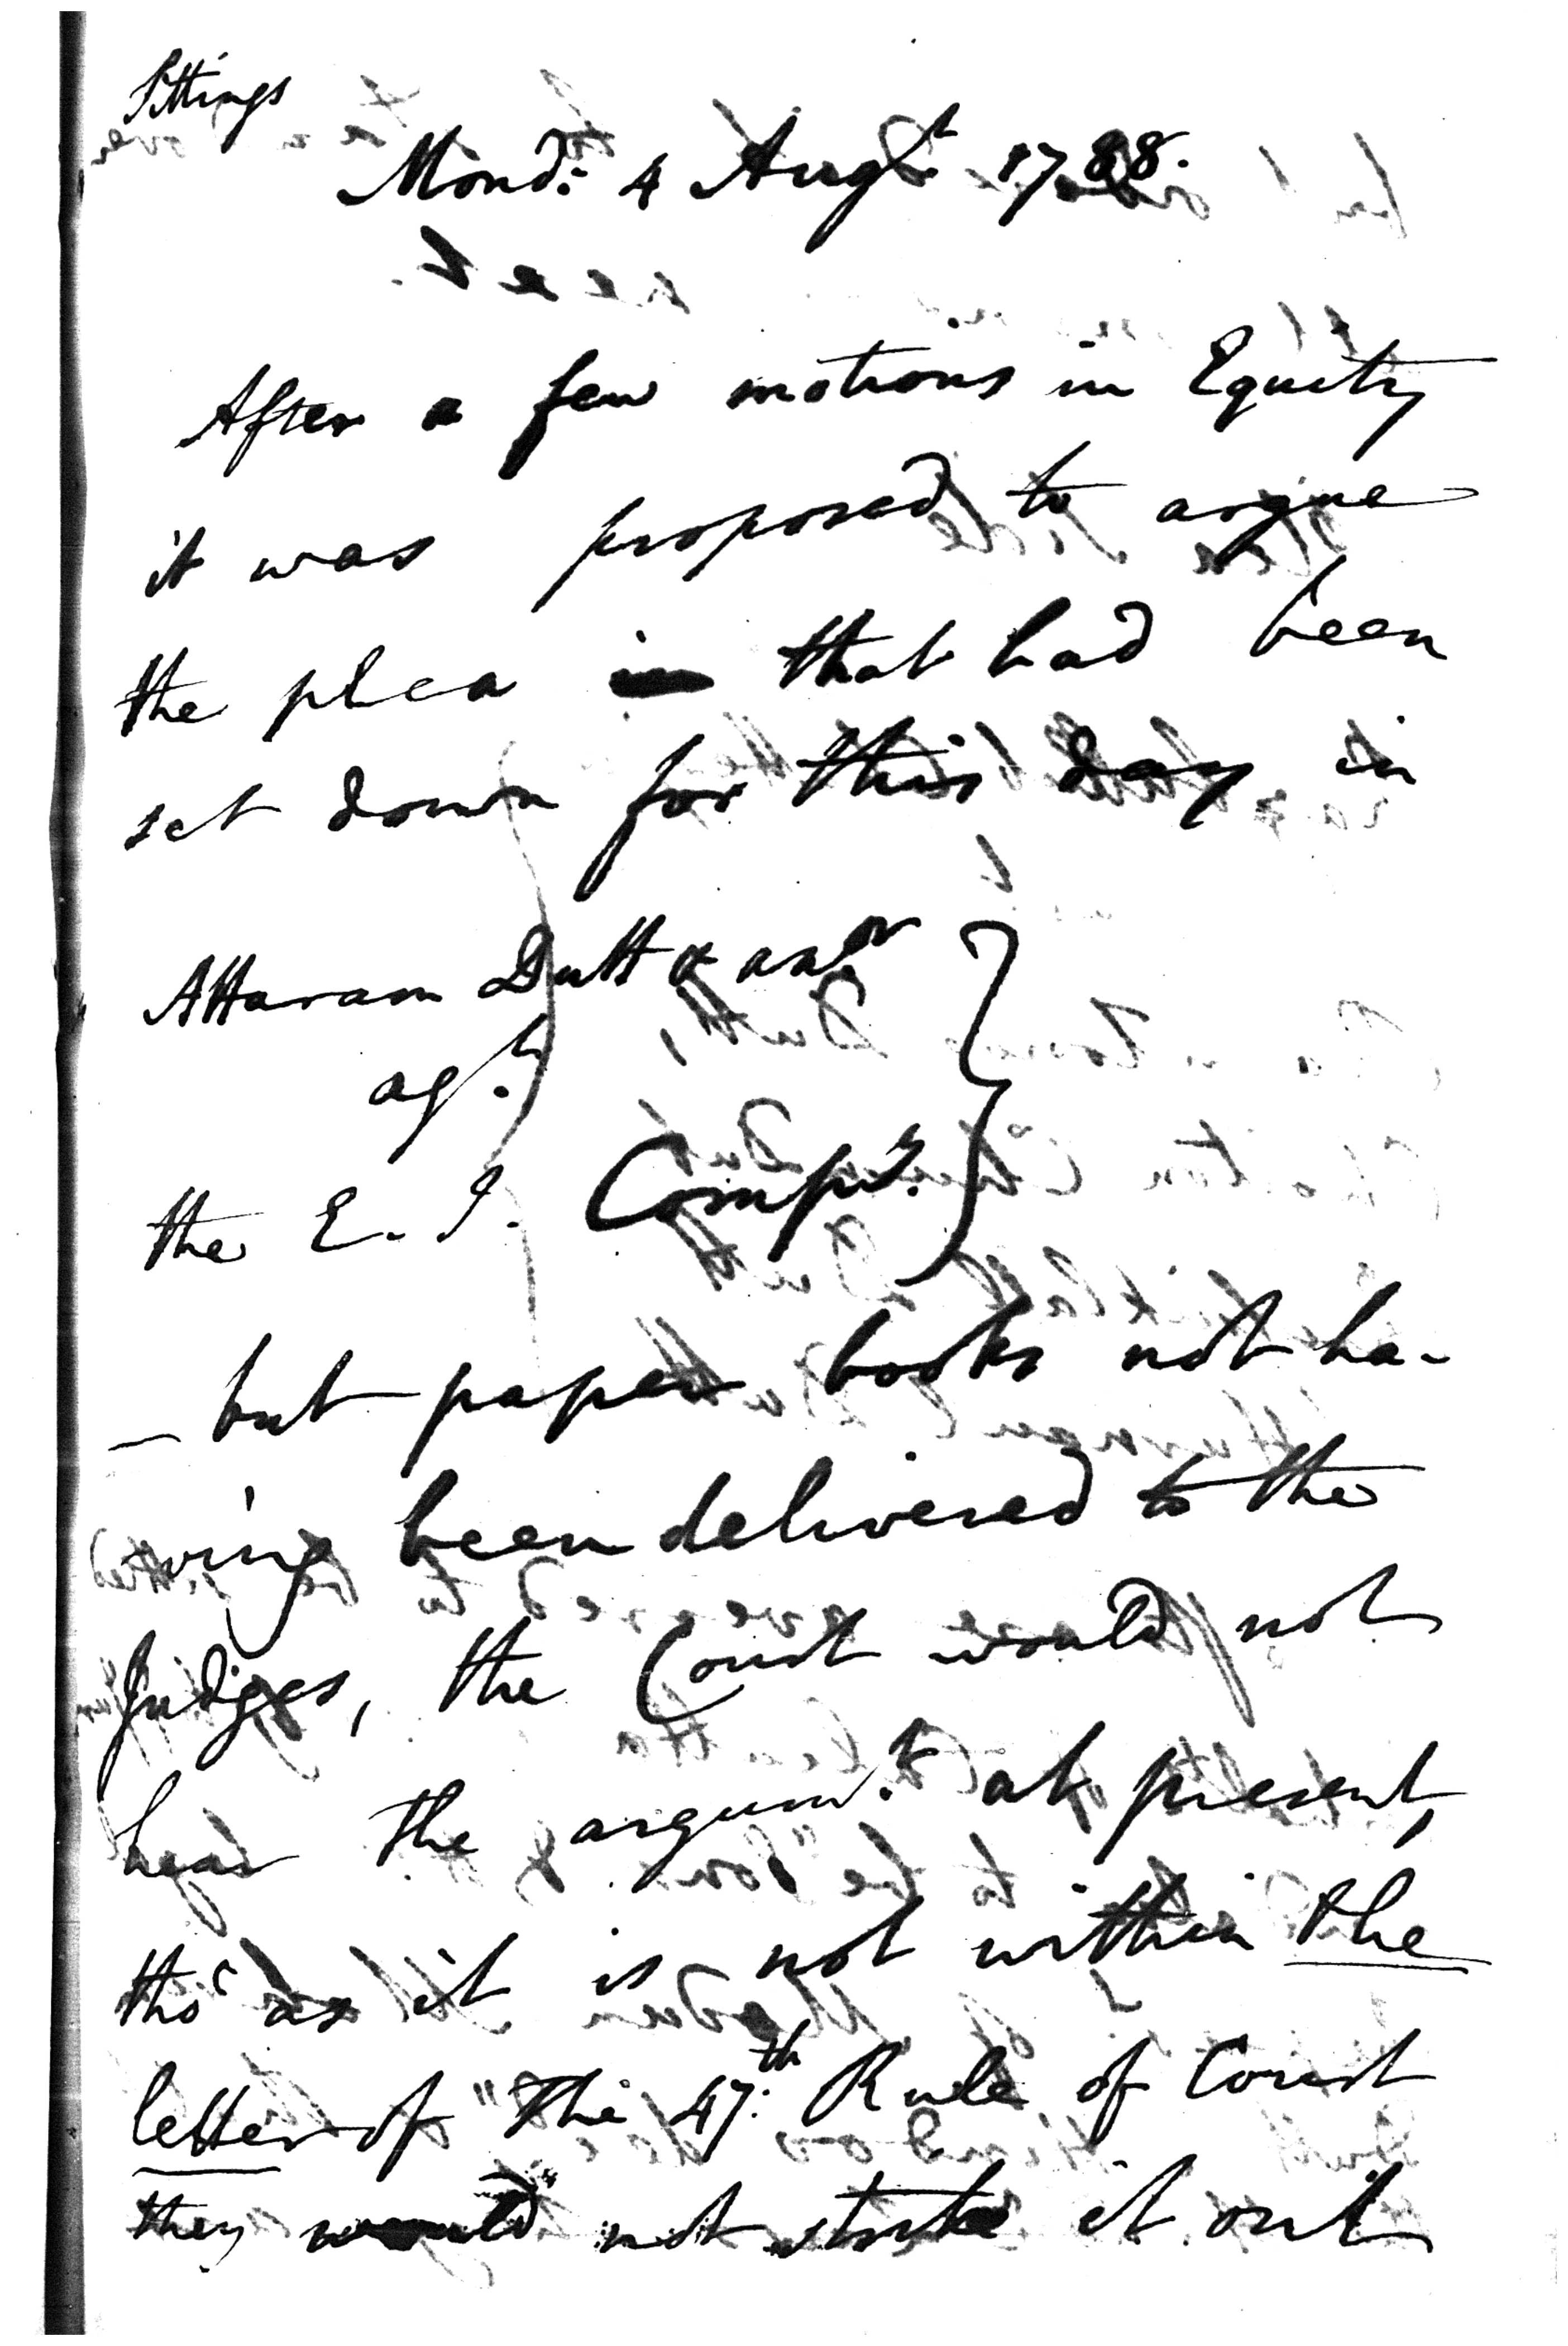 Sittings
Mond: 4 Augt 1788.
After a few motions in Equity
it was proposed to argue
the plea that had been
set down for this day in
Attaram Dutt & anor
agt.
the E. I. Compy.
– but paper books not ha-
ving been delivered to the
Judges, the Court would not
hear the argumt. at present,
tho' as it is not within the
letter of the 47th. Rule of Court
they would not strike it out